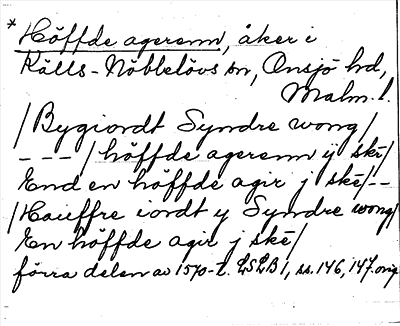 *Höffde agerenn, åker i
Källs-Nöbbelövs sn, Onsjö hd,
Malm. l.
/Bygiordt Syndre wong/
--- /höffde agerenn ÿ ské/
End en höffde agir j ské/--
/Hauffre iordt y Syndre wong/
En höffde agir j ské/
förra delen av 1570-t. LSLB 1, ss. 146, 147. orig